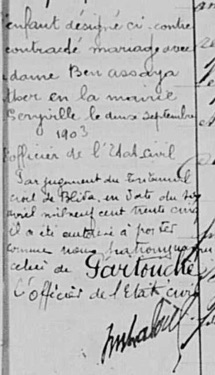 enfant désigné ci-contre
contracté mariage avec
dame Ben assaya
en la mairie
le deux septembre
1903
l'officier de l'Etat civil
Par jugement du Tribunal
civil de Blida, en date du
avril mil neuf cent trente cinq
il a été autorisé à porter
comme nom patronymique
celui de Partouche
L'officier de l'Etat civil